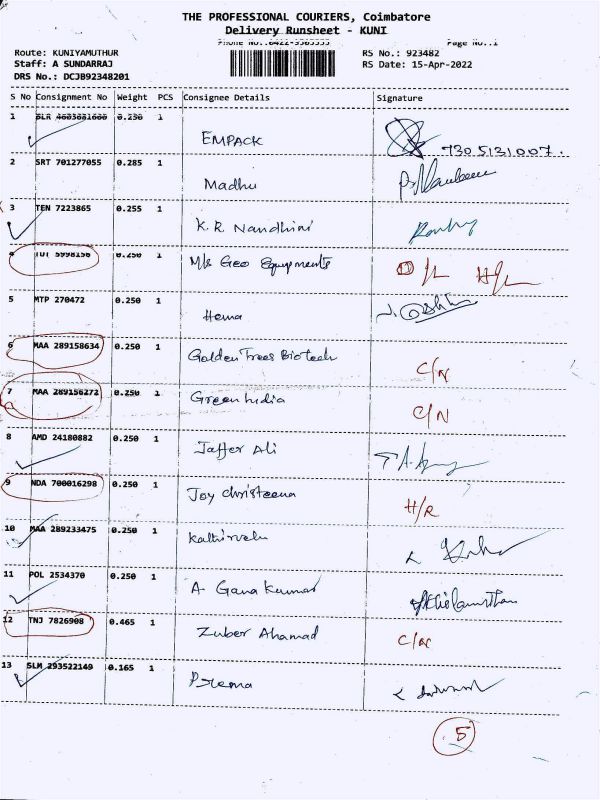 THE PROFESSIONAL COURIERS, Coimbatore
Delivery Runsheet - KUNI
Route: KUNIYAMUTHUR
Page No.:1
Staff: A SUNDARRAJ
RS No.: 923482
DRS No.: DCJB92348201
RS Date: 15-Apr-2022
S No Consignment No Weight PCS Consignee Details Signature
1 0.250 1 EMPACK 7305131007.
2 SRT 701277055 0.285 1 Madhu
3 TEN 7223865 0.255 1 K.R. Nandhini
4 0.250 1 M/s Geo Equipments D/L H/L
5 MTP 270472 0.250 1 Hema
6 MAA 289158634 0.250 1 Golden Trees Biotech C/N
7 MAA 289156272 0.250 1 Green India C/N
8 AMD 24180882 0.250 1 Jaffer Ali
9 NDA 700016298 0.250 1 Joy Christeena H/R
10 MAA 289233475 0.250 1 Kathirvelu
11 POL 2534370 0.250 1 A- Gana Kumar
12 TNJ 7826908 0.465 1 Zuber Ahamad C/N
13 SLM 293522149 0.165 1 Prema
5